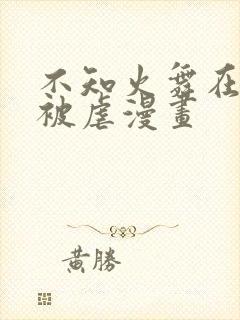 不知火舞在
被虐漫畫
黃勝